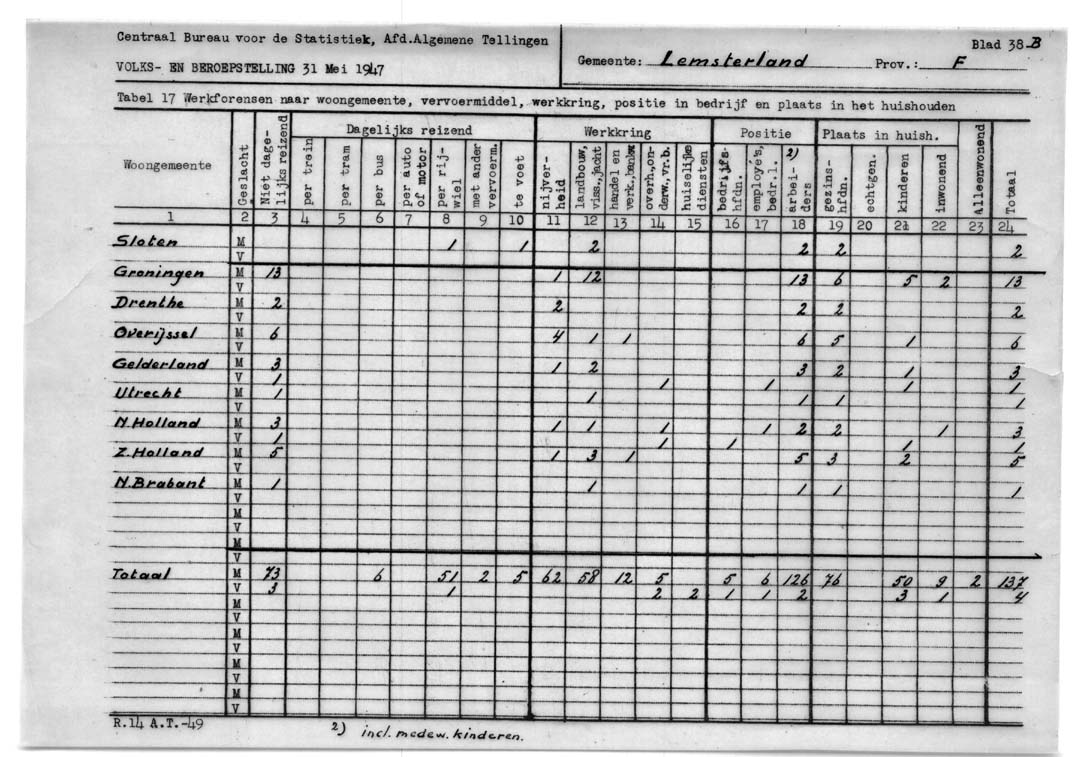 Centraal Bureau voor de Statistiek, Afd.Algemene Tellingen
Blad 38-B
VOLKS- EN BEROEPSTELLING 31 Mei 1947
Gemeente: Lemsterland Prov.: F
Tabel 17 Werkforensen naar woongemeente, vervoermiddel, werkkring, positie in bedrijf en plaats in het huishouden
Woongemeente Geslacht Niet dagelijks reizend Dagelijks reizend Werkkring Positie Plaats in huish. Alleenwonend Totaal
per trein per tram per bus per auto of motor per rijwiel met ander vervoerm. te voet nijverheid landbouw, viss., jacht handel en verk., bankw. overh., onderw., vr.b. huiselijke diensten bedrijfshfdn. employé's, bedr.l. 2) arbeiders gezinshfdn. echtgen. kinderen inwonend
1 2 3 4 5 6 7 8 9 10 11 12 13 14 15 16 17 18 19 20 21 22 23 24
Sloten M 1 1 2 2 2 2
V
Groningen M 13 1 12 13 6 5 2 13
V
Drenthe M 2 2 2 2 2
V
Overijssel M 6 4 1 1 6 5 1 6
V
Gelderland M 3 1 2 3 2 1 3
V 1 1 1 1 1
Utrecht M 1 1 1 1 1
V
N.Holland M 3 1 1 1 1 2 2 1 3
V 1 1 1 1 1
Z.Holland M 5 1 3 1 5 3 2 5
V
N.Brabant M 1 1 1 1 1
V
M
V
M
V
Totaal M 73 6 51 2 5 62 58 12 5 5 6 126 76 50 9 2 137
V 3 1 2 2 1 1 2 3 1 4
M
V
M
V
M
V
M
V
R.14 A.T.-49
2) incl. medew. kinderen.